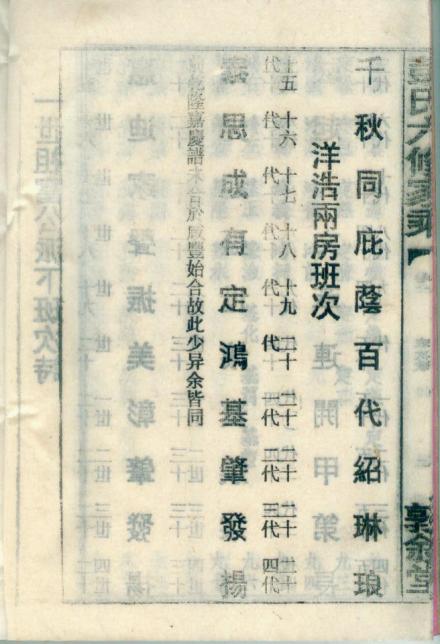 氏六修家乘
堂
千秋同庇蔭百代紹琳琅
洋浩兩房班次
十五代 十六代 十七代 十八代 十九代 二十代 二十一代 二十二代 二十三代 二十四代
思成有定鴻基肇發揚
乾隆嘉慶譜未合於咸豐始合故此少异余皆同